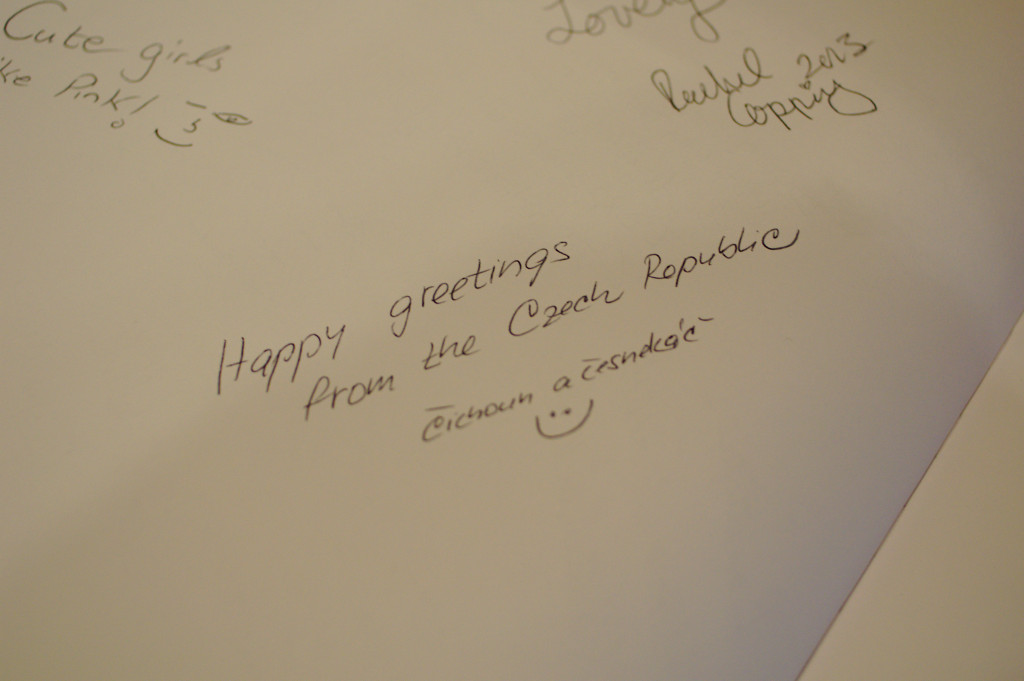 Cute girls
Pink!
Lovely
Rachel 2013
Copping
Happy greetings
from the Czech Republic
čichoun a česnekáč